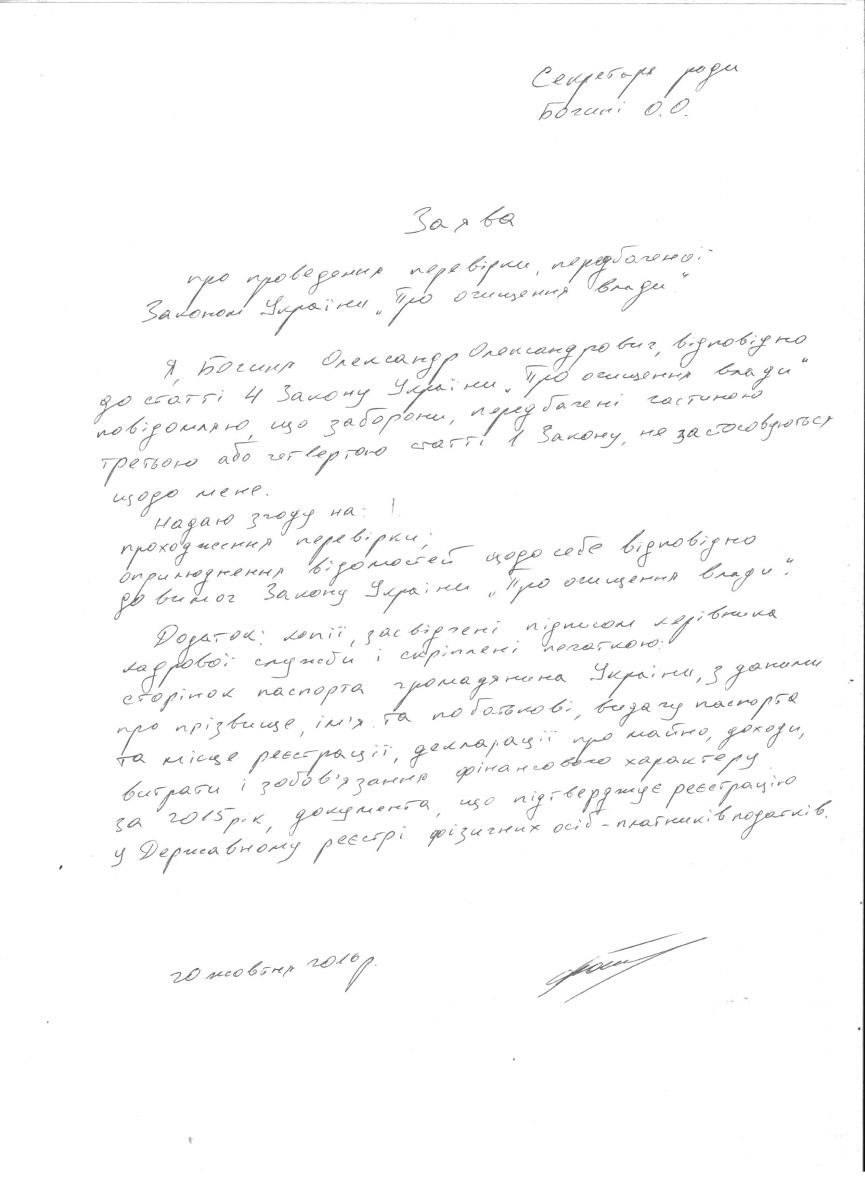 Секретарю ради
Богині О.О.
Заява
про проведення перевірки, передбаченої
Законом України „Про очищення влади".
Я, Богиня Олександр Олександрович, відповідно
до статті 4 Закону України „Про очищення влади"
повідомляю, що заборони, передбачені частиною
третьою або четвертою статті 1 Закону, не застосовуються
щодо мене.
Надаю згоду на:
проходження перевірки;
оприлюднення відомостей щодо себе відповідно
до вимог Закону України „Про очищення влади".
Додаток: копії, засвідчені підписом керівника
кадрової служби і скріплені печаткою:
сторінок паспорта громадянина України, з даними
про прізвище, ім'я та по батькові, видачу паспорта
та місце реєстрації, декларації про майно, доходи,
витрати і зобов'язання фінансового характеру
за 2015 рік, документа, що підтверджує реєстрацію
у Державному реєстрі фізичних осіб – платників податків.
20 жовтня 2016 р.